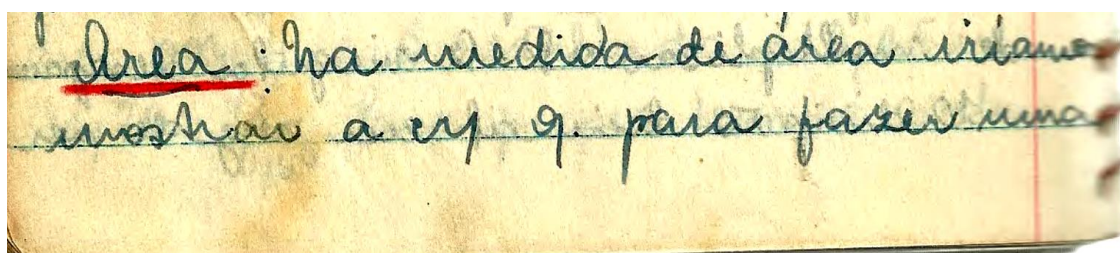 Área : Na medida de área iriamos
mostrar a cç q. para fazer uma